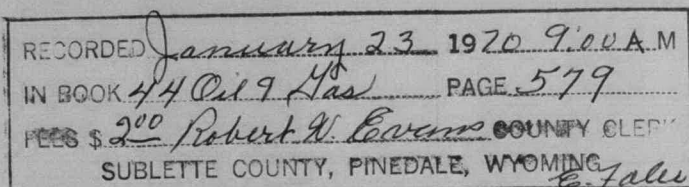 RECORDED January 23 1970 9:00 A M
IN BOOK 44 Oil & Gas PAGE 579
FEES $ 2.00 Robert W. Evans COUNTY CLERK
SUBLETTE COUNTY, PINEDALE, WYOMING